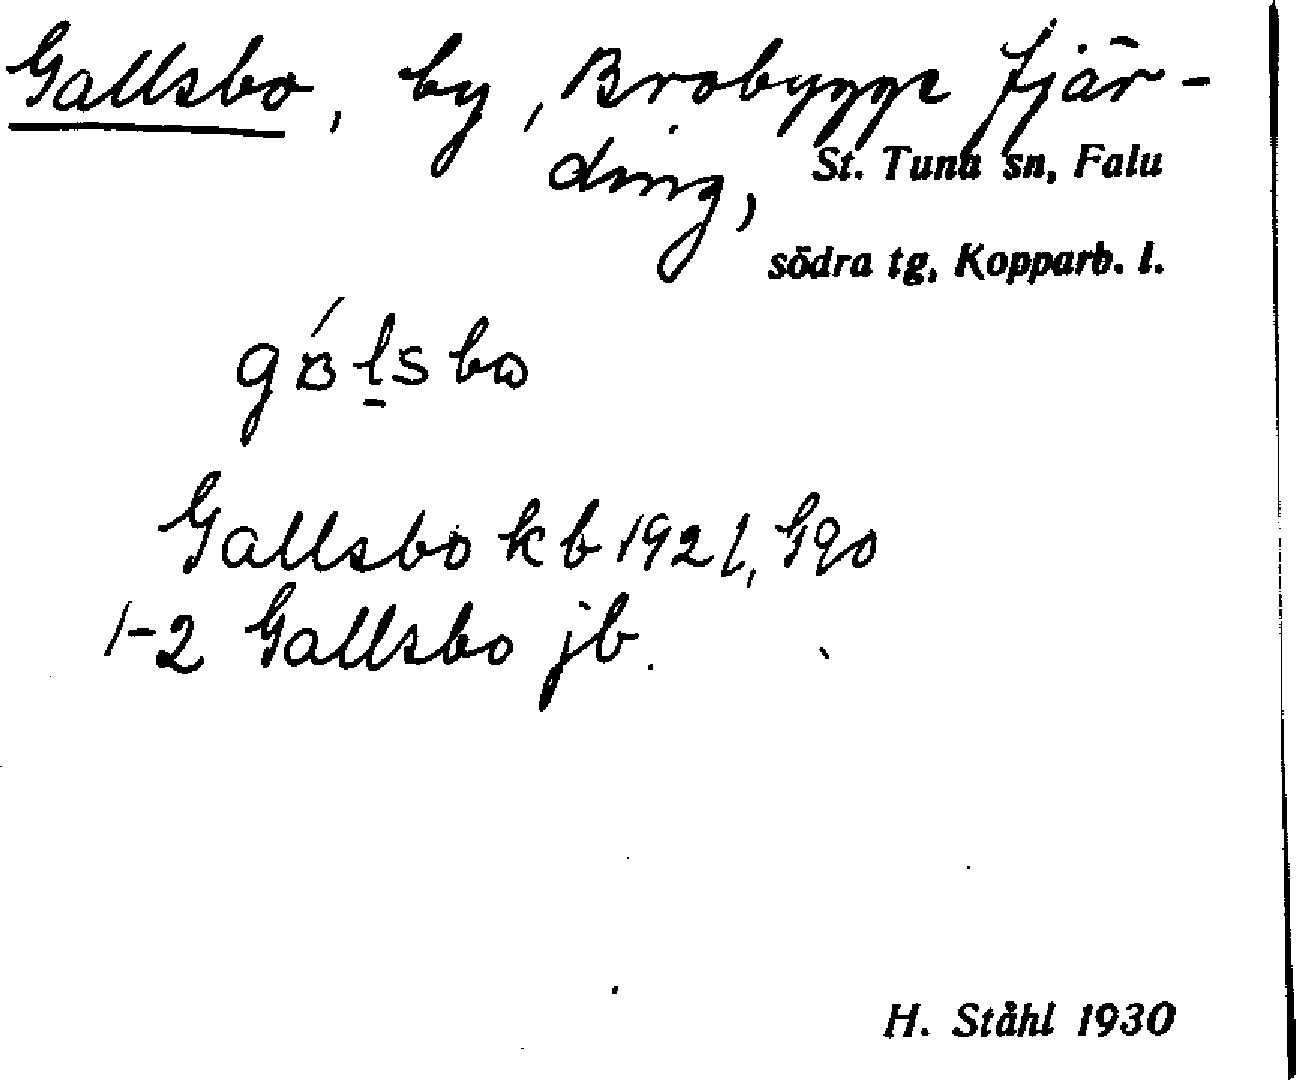 Gallsbo, by, Brobygge fjär-
ding, St. Tuna sn, Falu
södra tg, Kopparb. l.
Gallsbo kb 1921, Gqo
1-2 Gallsbo jb.
H. Ståhl 1930